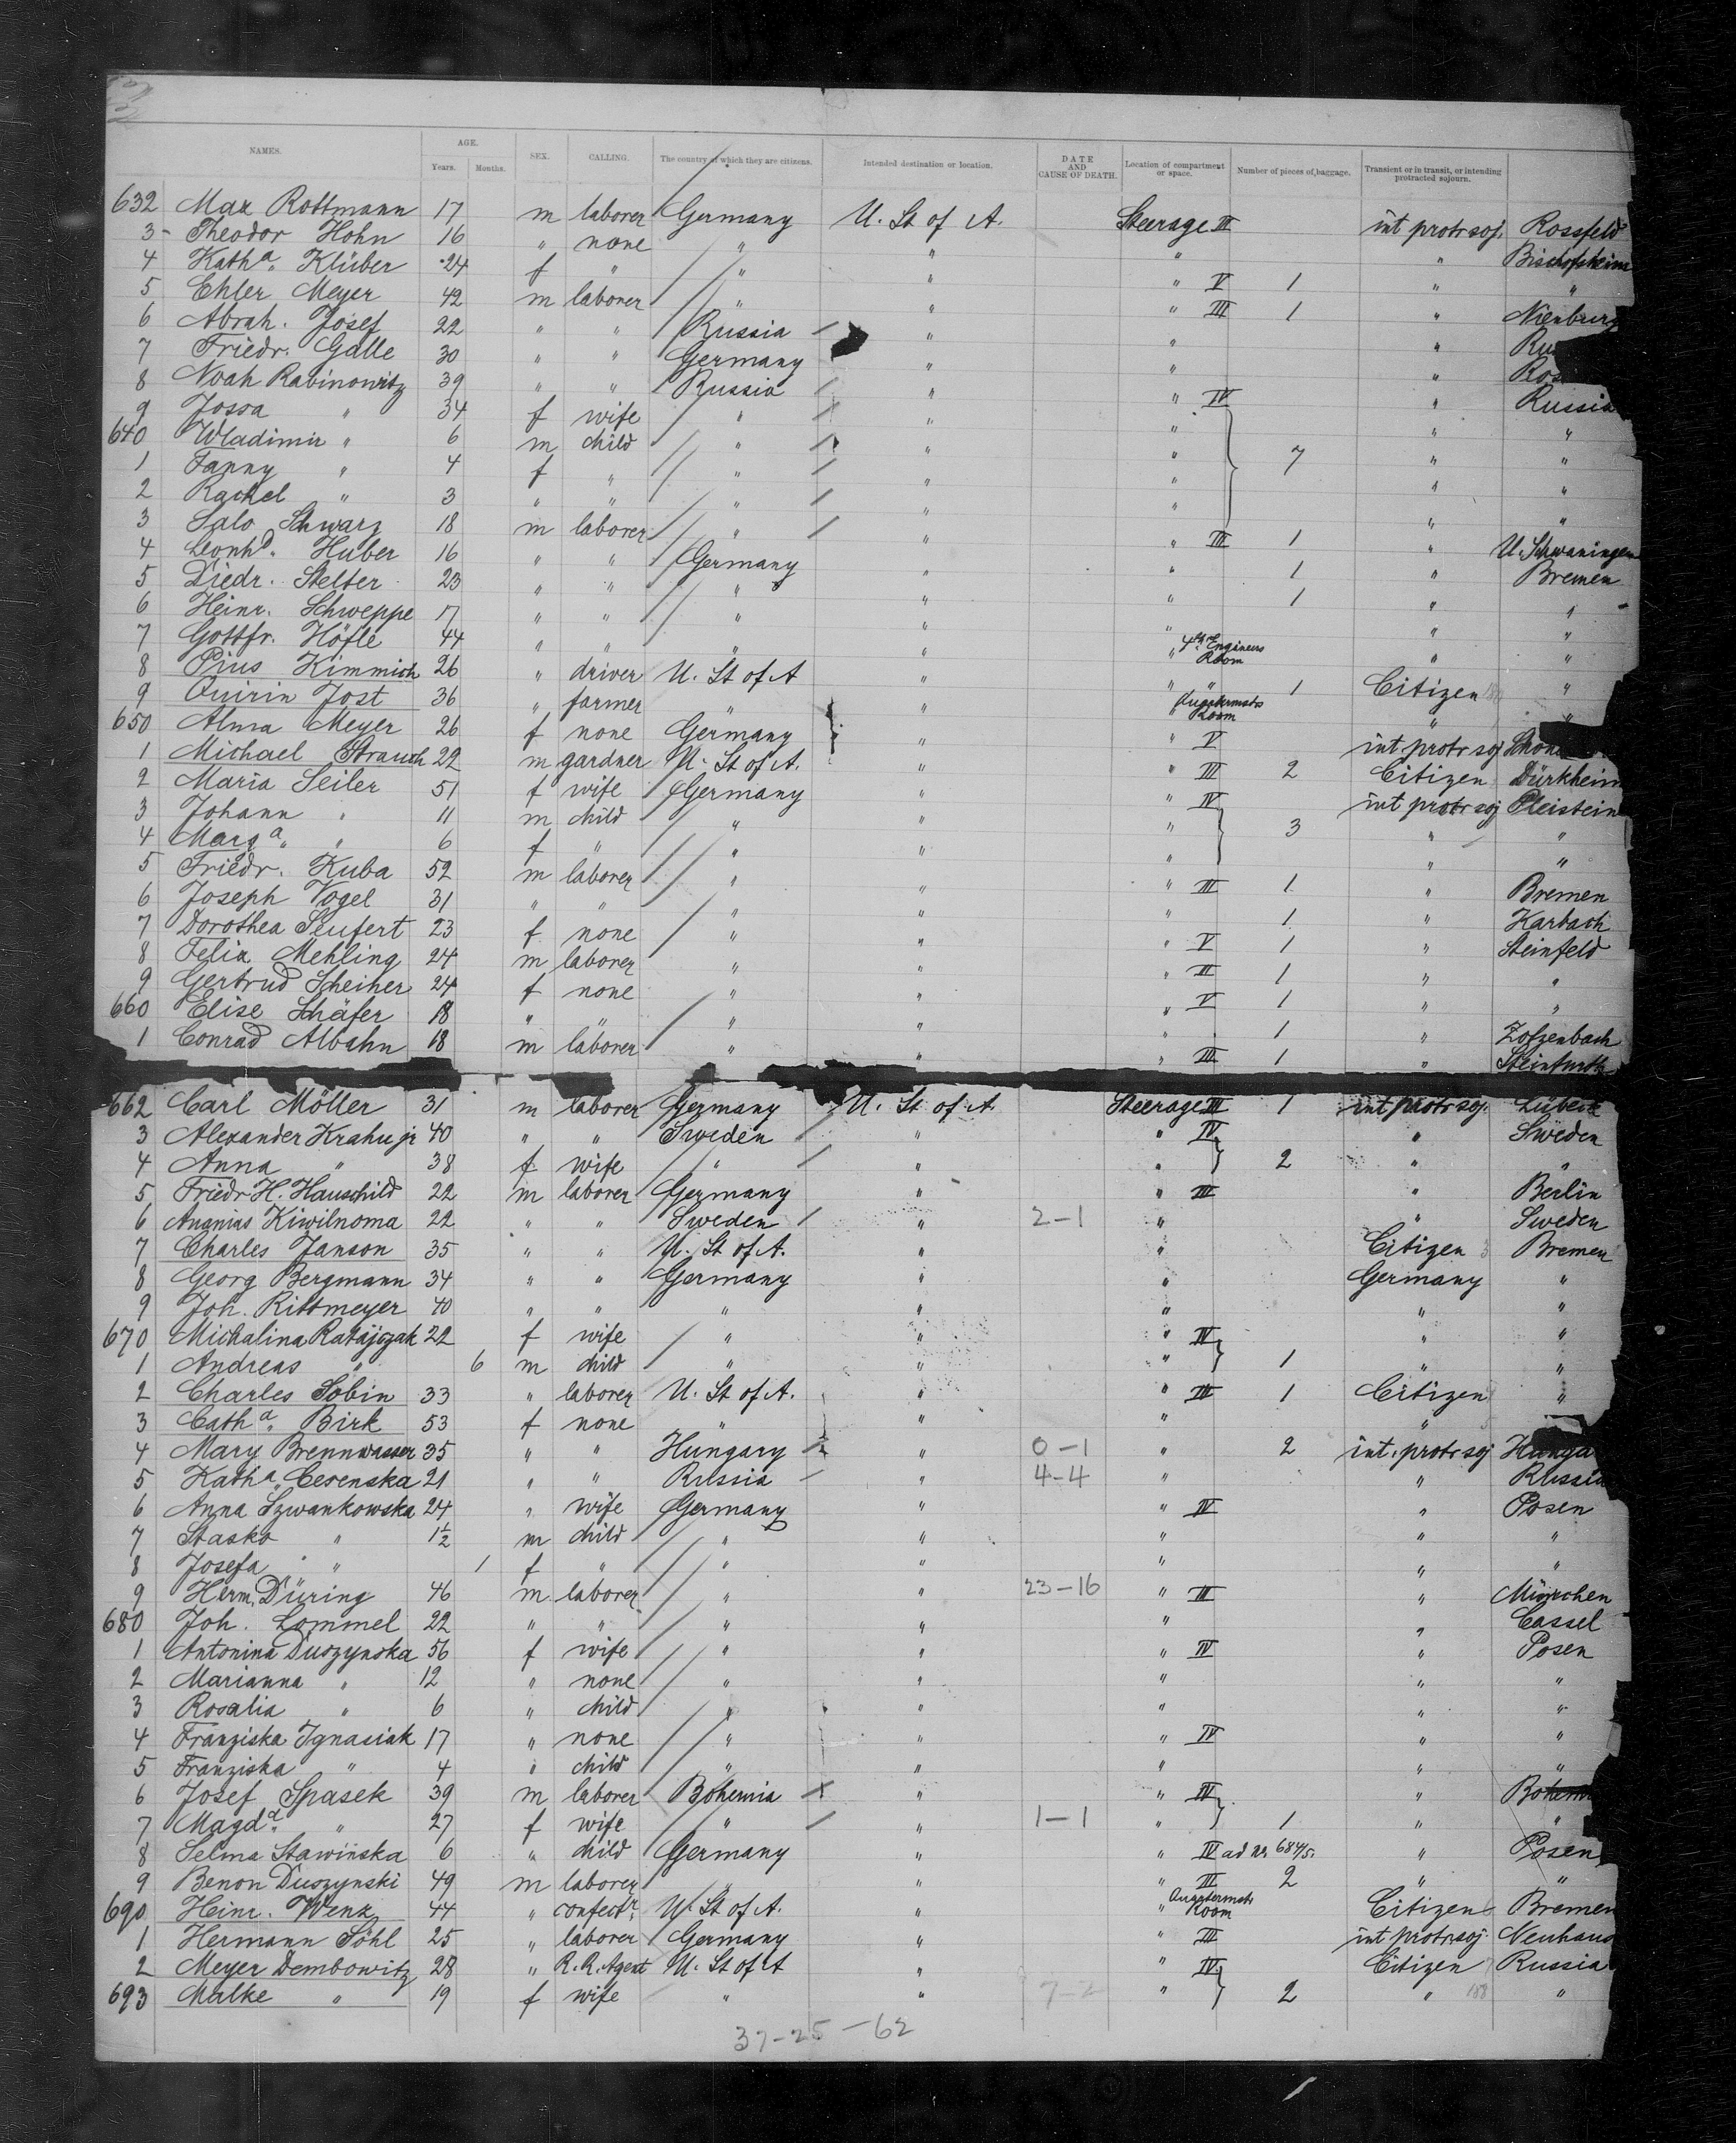 NAMES. AGE. Years. Months. SEX. CALLING. The country of which they are citizens. Intended destination or location. DATE AND CAUSE OF DEATH. Location of compartment or space. Number of pieces of baggage. Transient or in transit, or intending protracted sojourn.
632 Max Rottmann 17 m laborer Germany U. St of A. Steerage III int protr soj. Rossfeld
3 Theodor Hohn 16 " none " " " " Bischofsheim
4 Kath.a Klüber 24 f " " " " V 1 " "
5 Ehler Meyer 42 m laborer " " " III 1 " Nienburg
6 Abrah. Josef 22 " " Russia " " "
7 Friedr. Galle 30 " " Germany " " "
8 Noah Rabinowitz 39 " " Russia " " IV " Russia
9 Jossa " 34 f wife " " " " "
640 Wladimir " 6 m child " " " 7 " "
1 Fanny " 4 f " " " " " "
2 Rachel " 3 " " " " " " "
3 Salo Schwarz 18 m laborer " " " III 1 "
4 Leonhd. Huber 16 " " Germany " " 1 " U. Schwaningen
5 Diedr. Stelter 23 " " " " " 1 " Bremen
6 Heinr. Schweppe 17 " " " " " " "
7 Gottfr. Höfle 44 " " " " " 4th Engineers Room " "
8 Pius Kimmich 26 " driver U. St of A " " " 1 Citizen "
9 Quirin Jost 36 " farmer " " " Quartermstrs Room " "
650 Alma Meyer 26 f none Germany " " V int protr soj
1 Michael Strauch 22 m gardner U. St of A. " " III 2 Citizen Dürkheim
2 Maria Seiler 51 f wife Germany " " IV int protr soj Pleistein
3 Johann " 11 m child " " " 3 " "
4 Marg.a " 6 f " " " " " "
5 Friedr. Kuba 52 m laborer " " " III 1 " Bremen
6 Joseph Vogel 31 " " " " " 1 " Karbach
7 Dorothea Seufert 23 f none " " " V 1 " Steinfeld
8 Felix Mehling 24 m laborer " " " III 1 " "
9 Gertrud Scheiner 24 f none " " " V 1 " "
660 Elise Schäfer 18 " " " " " 1 " Zotzenbach
1 Conrad Albahn 18 m laborer " " " III 1 " Steinfurth
662 Carl Möller 31 m laborer Germany U. St of A Steerage III 1 int protr soj. Lübeck
3 Alexander Krahu jr 40 " " Sweden " " IV " Sweden
4 Anna " 38 f wife " " " 2 " "
5 Friedr H. Hauschild 22 m laborer Germany " " III " Berlin
6 Ananias Kiwilnoma 22 " " Sweden " 2-1 " " Sweden
7 Charles Janson 35 " " U. St of A. " " Citizen Bremen
8 Georg Bergmann 34 " " Germany " " Germany "
9 Joh. Rittmeyer 40 " " " " " " "
670 Michalina Ratajczak 22 f wife " " " IV " "
1 Andreas " 6 m child " " " 1 " "
2 Charles Sobin 33 " laborer U. St of A. " " III 1 Citizen "
3 Cath.a Birk 53 f none " " " "
4 Mary Brennwasser 35 " " Hungary " 0-1 " 2 int. protr soj
5 Kath.a Cerenska 21 " " Russia " 4-4 " " Russia
6 Anna Szwankowska 24 " wife Germany " " IV " Posen
7 Stasko " 1½ m child " " " " "
8 Josefa " 1 f " " " " " "
9 Herm. Düring 46 m laborer " " 23-16 " III " München
680 Joh. Lommel 22 " " " " " " Cassel
1 Antonina Duszynska 56 f wife " " " IV " Posen
2 Marianna " 12 " none " " " " "
3 Rosalia " 6 " child " " " " "
4 Franziska Ignasiak 17 " none " " " IV " "
5 Franziska " 4 " child " " " " "
6 Josef Spasek 39 m laborer Bohemia " " IV "
7 Magda. " 27 f wife " " 1-1 " 1 " "
8 Selma Stawinska 6 " child Germany " " IV ad No 684/5. " Posen
9 Benon Duszynski 49 m laborer " " " III 2 " "
690 Heinr. Wenz 44 " confectr. U. St of A. " " Quartermstr Room Citizen Bremen
1 Hermann Söhl 25 " laborer Germany " " III int protr soj. Neuhaus
2 Meyer Dembowitz 28 " R. R. Agent U. St of A " " IV Citizen Russia
693 Malke " 19 f wife " " 7-2 " 2 " "
37-25-62